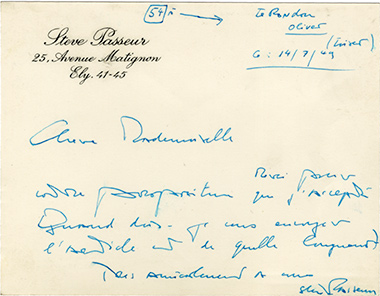 Steve Passeur
25, Avenue Matignon
Ely. 41-45
54
Oliver
14/7/49
Chère Mademoiselle
Merci pour
votre proposition que j'accepte
Quand dois-je vous envoyer
l'article et de quelle longueur?
Très amicalement à vous
Steve Passeur